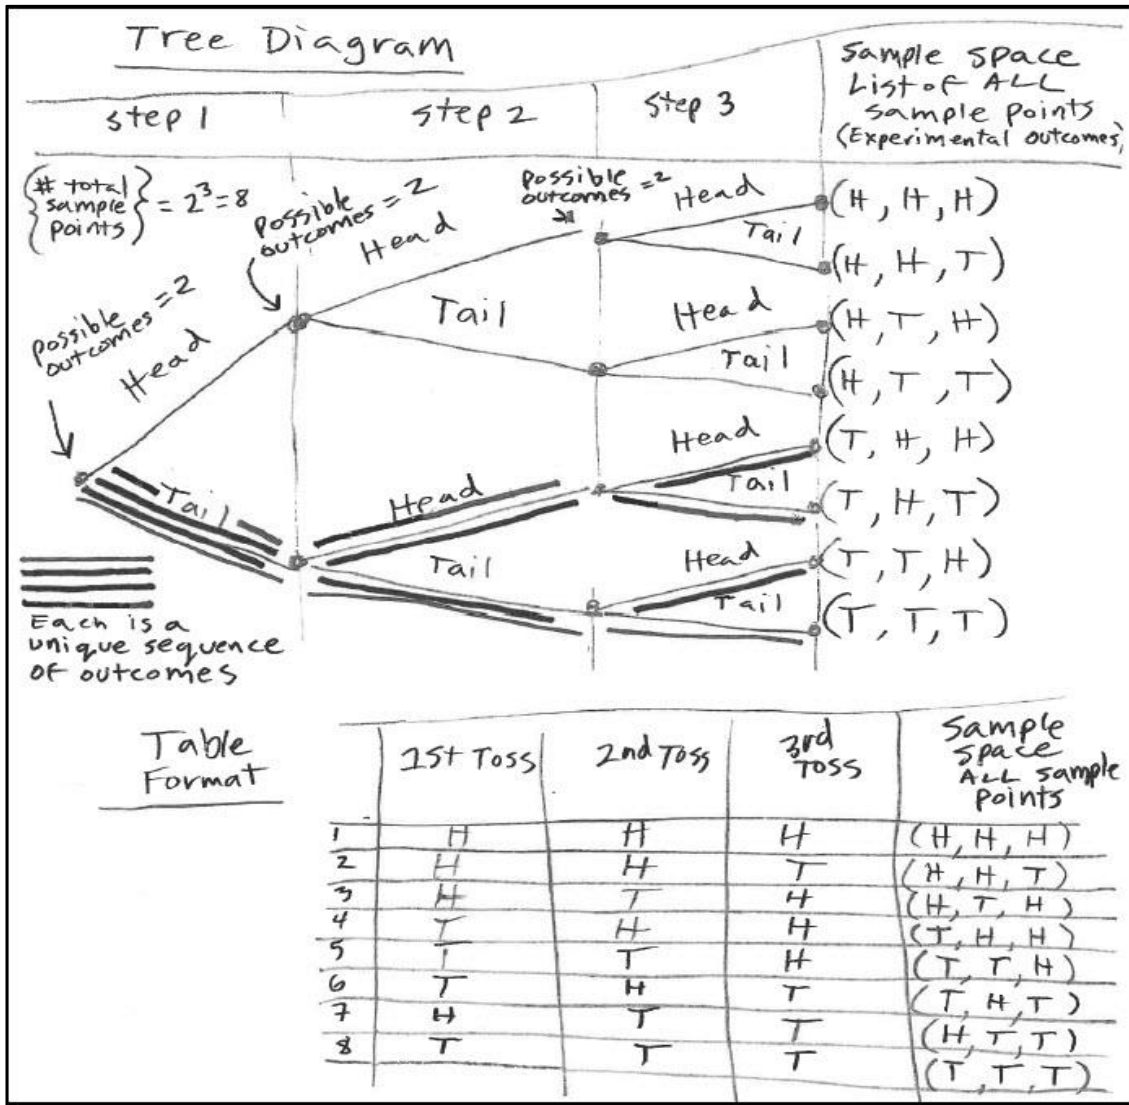 Tree Diagram
Step 1
Step 2
Step 3
Sample Space
List of ALL
Sample Points
(Experimental outcomes)
{# total sample points} = 2³ = 8
possible outcomes = 2
Head
Tail
possible outcomes = 2
Head
Tail
Head
Tail
possible outcomes = 2
Head
Tail
Head
Tail
Head
Tail
Head
Tail
(H, H, H)
(H, H, T)
(H, T, H)
(H, T, T)
(T, H, H)
(T, H, T)
(T, T, H)
(T, T, T)
Each is a
unique sequence
of outcomes
Table
Format
1st Toss
2nd Toss
3rd
Toss
Sample
Space
ALL sample
points
1 H H H (H, H, H)
2 H H T (H, H, T)
3 H T H (H, T, H)
4 T H H (T, H, H)
5 T T H (T, T, H)
6 T H T (T, H, T)
7 H T T (H, T, T)
8 T T T (T, T, T)